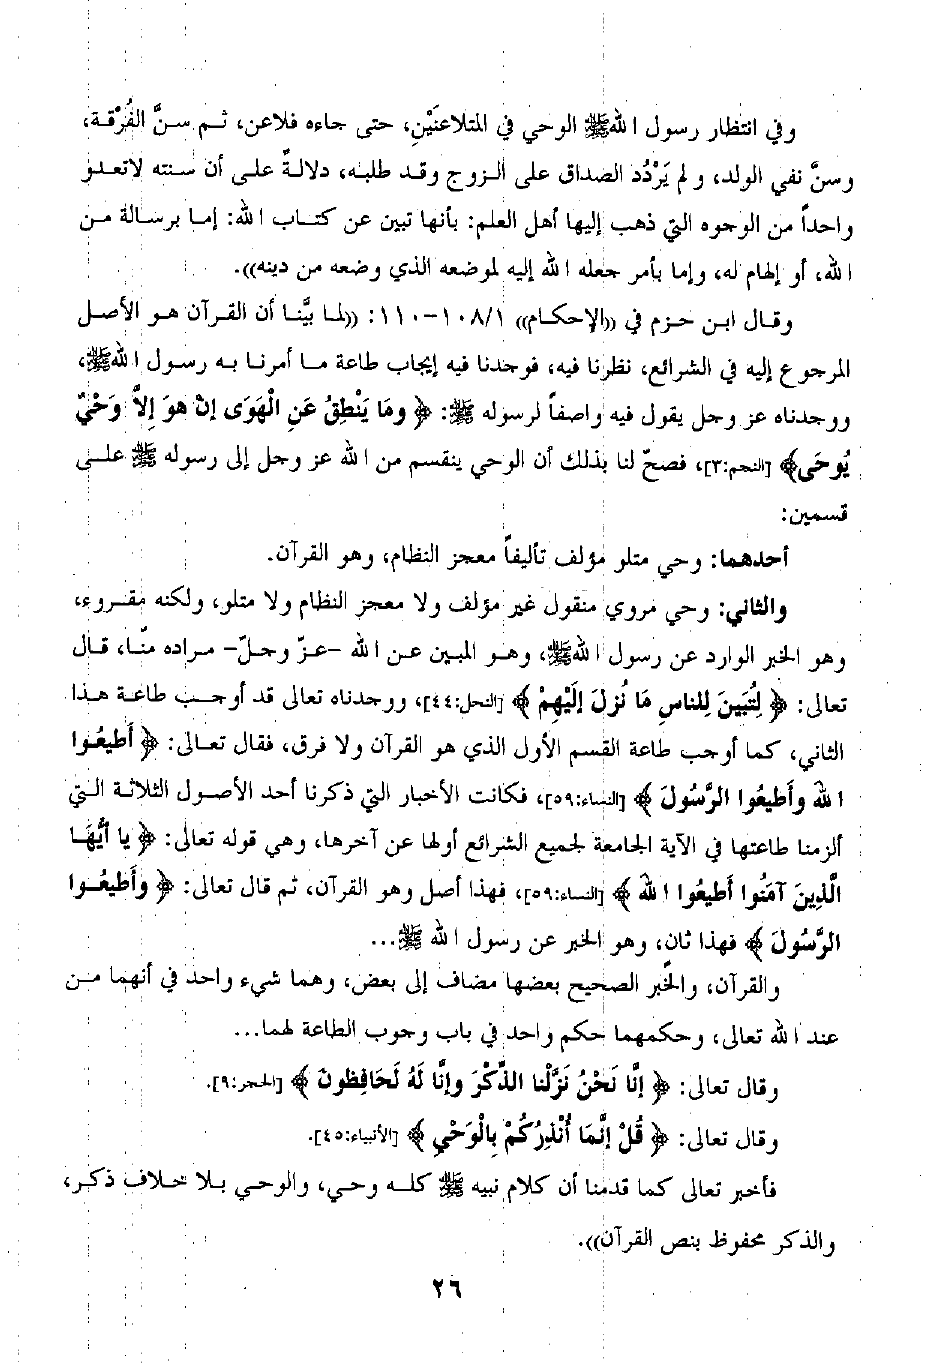 وفي انتظار رسول الله ﷺ الوحي في المتلاعنَيْنِ، حتى جاءه فلاعن، ثم سنَّ الفُرْقة،
وسنَّ نفي الولد، و لم يَرْدُد الصداق على الزوج وقد طلبه، دلالةً على أن سنته لاتعدو
واحداً من الوجوه التي ذهب إليها أهل العلم: بأنها تبين عن كتاب الله: إما برسالة من
الله، أو إلهام له، وإما بأمر جعله الله إليه لموضعه الذي وضعه من دينه)).
وقال ابن حزم في ((الإحكام)) ١٠٨/١-١١٠: ((لما بيَّنا أن القرآن هو الأصل
المرجوع إليه في الشرائع، نظرنا فيه، فوجدنا فيه إيجاب طاعة ما أمرنا به رسول الله ﷺ،
ووجدناه عز وجل يقول فيه واصفاً لرسوله ﷺ: ﴿ وما يَنْطِقُ عَنِ الْهَوَى إنْ هوَ إلاَّ وَحْيٌ
يُوحَى﴾ [النجم:٣]، فصحّ لنا بذلك أن الوحي ينقسم من الله عز وجل إلى رسوله ﷺ على
قسمين:
أحدهما: وحي متلو مؤلف تأليفاً معجز النظام، وهو القرآن.
والثاني: وحي مروي منقول غير مؤلف ولا معجز النظام ولا متلو، ولكنه مقروء،
وهو الخبر الوارد عن رسول الله ﷺ، وهو المبين عن الله -عزّ وجلّ- مراده منّا، قال
تعالى: ﴿ لِتُبَينَ لِلناسِ مَا نُزلَ إلَيْهِمْ ﴾ [النحل:٤٤]، ووجدناه تعالى قد أوجب طاعة هذا
الثاني، كما أوجب طاعة القسم الأول الذي هو القرآن ولا فرق، فقال تعالى: ﴿ أطيعُوا
الله وأطيعُوا الرَّسُولَ ﴾ [النساء:٥٩]، فكانت الأخبار التي ذكرنا أحد الأصول الثلاثة التي
ألزمنا طاعتها في الآية الجامعة لجميع الشرائع أولها عن آخرها، وهي قوله تعالى: ﴿ يا أيُّهَا
الَّذِينَ آمَنُوا أطيعُوا الله ﴾ [النساء:٥٩]، فهذا أصل وهو القرآن، ثم قال تعالى: ﴿ وأطيعُوا
الرَّسُولَ ﴾ فهذا ثان، وهو الخبر عن رسول الله ﷺ...
والقرآن، والخبر الصحيح بعضها مضاف إلى بعض، وهما شيء واحد في أنهما من
عند الله تعالى، وحكمهما حكم واحد في باب وجوب الطاعة لهما...
وقال تعالى: ﴿ إنَّا نَحْنُ نَزَّلْنا الذِّكْرَ وإنَّا لَهُ لَحَافِظونَ ﴾ [الحجر:٩].
وقال تعالى: ﴿ قُلْ إنَّمَا أُنْذِرُكُمْ بِالْوَحْيِ ﴾ [الأنبياء:٤٥].
فأخبر تعالى كما قدمنا أن كلام نبيه ﷺ كله وحي، والوحي بلا خلاف ذكر،
والذكر محفوظ بنص القرآن)).
٢٦